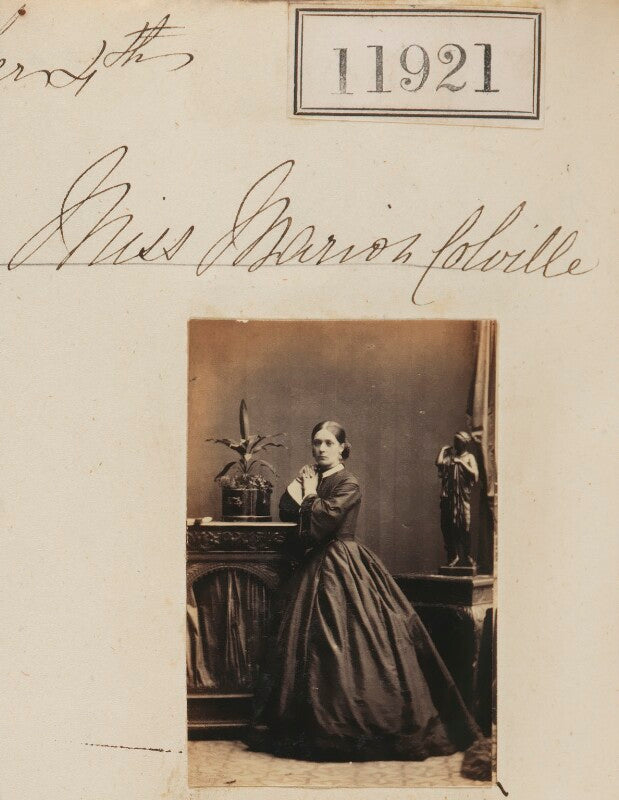 11921
4th
Miss Marion Colville